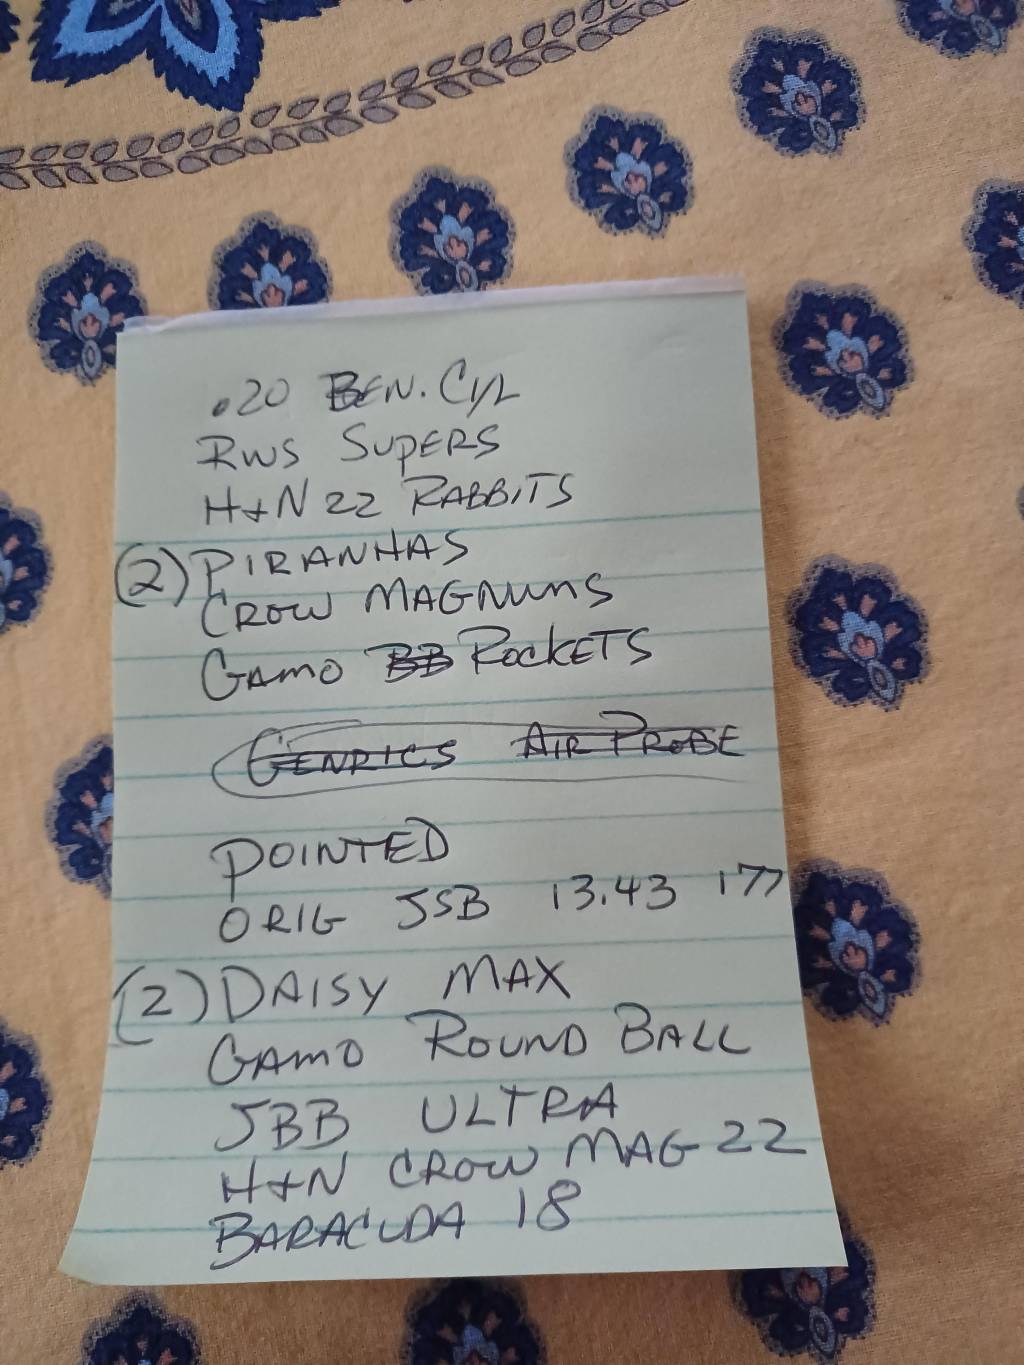 .20 BEN. CYL
RWS SUPERS
H+N 22 RABBITS
(2) PIRANHAS
CROW MAGNUMS
GAMO BB ROCKETS
GENRICS AIR PROBE
POINTED
ORIG JSB 13.43 177
(2) DAISY MAX
GAMO ROUND BALL
JBB ULTRA
H+N CROW MAG 22
BARACUDA 18